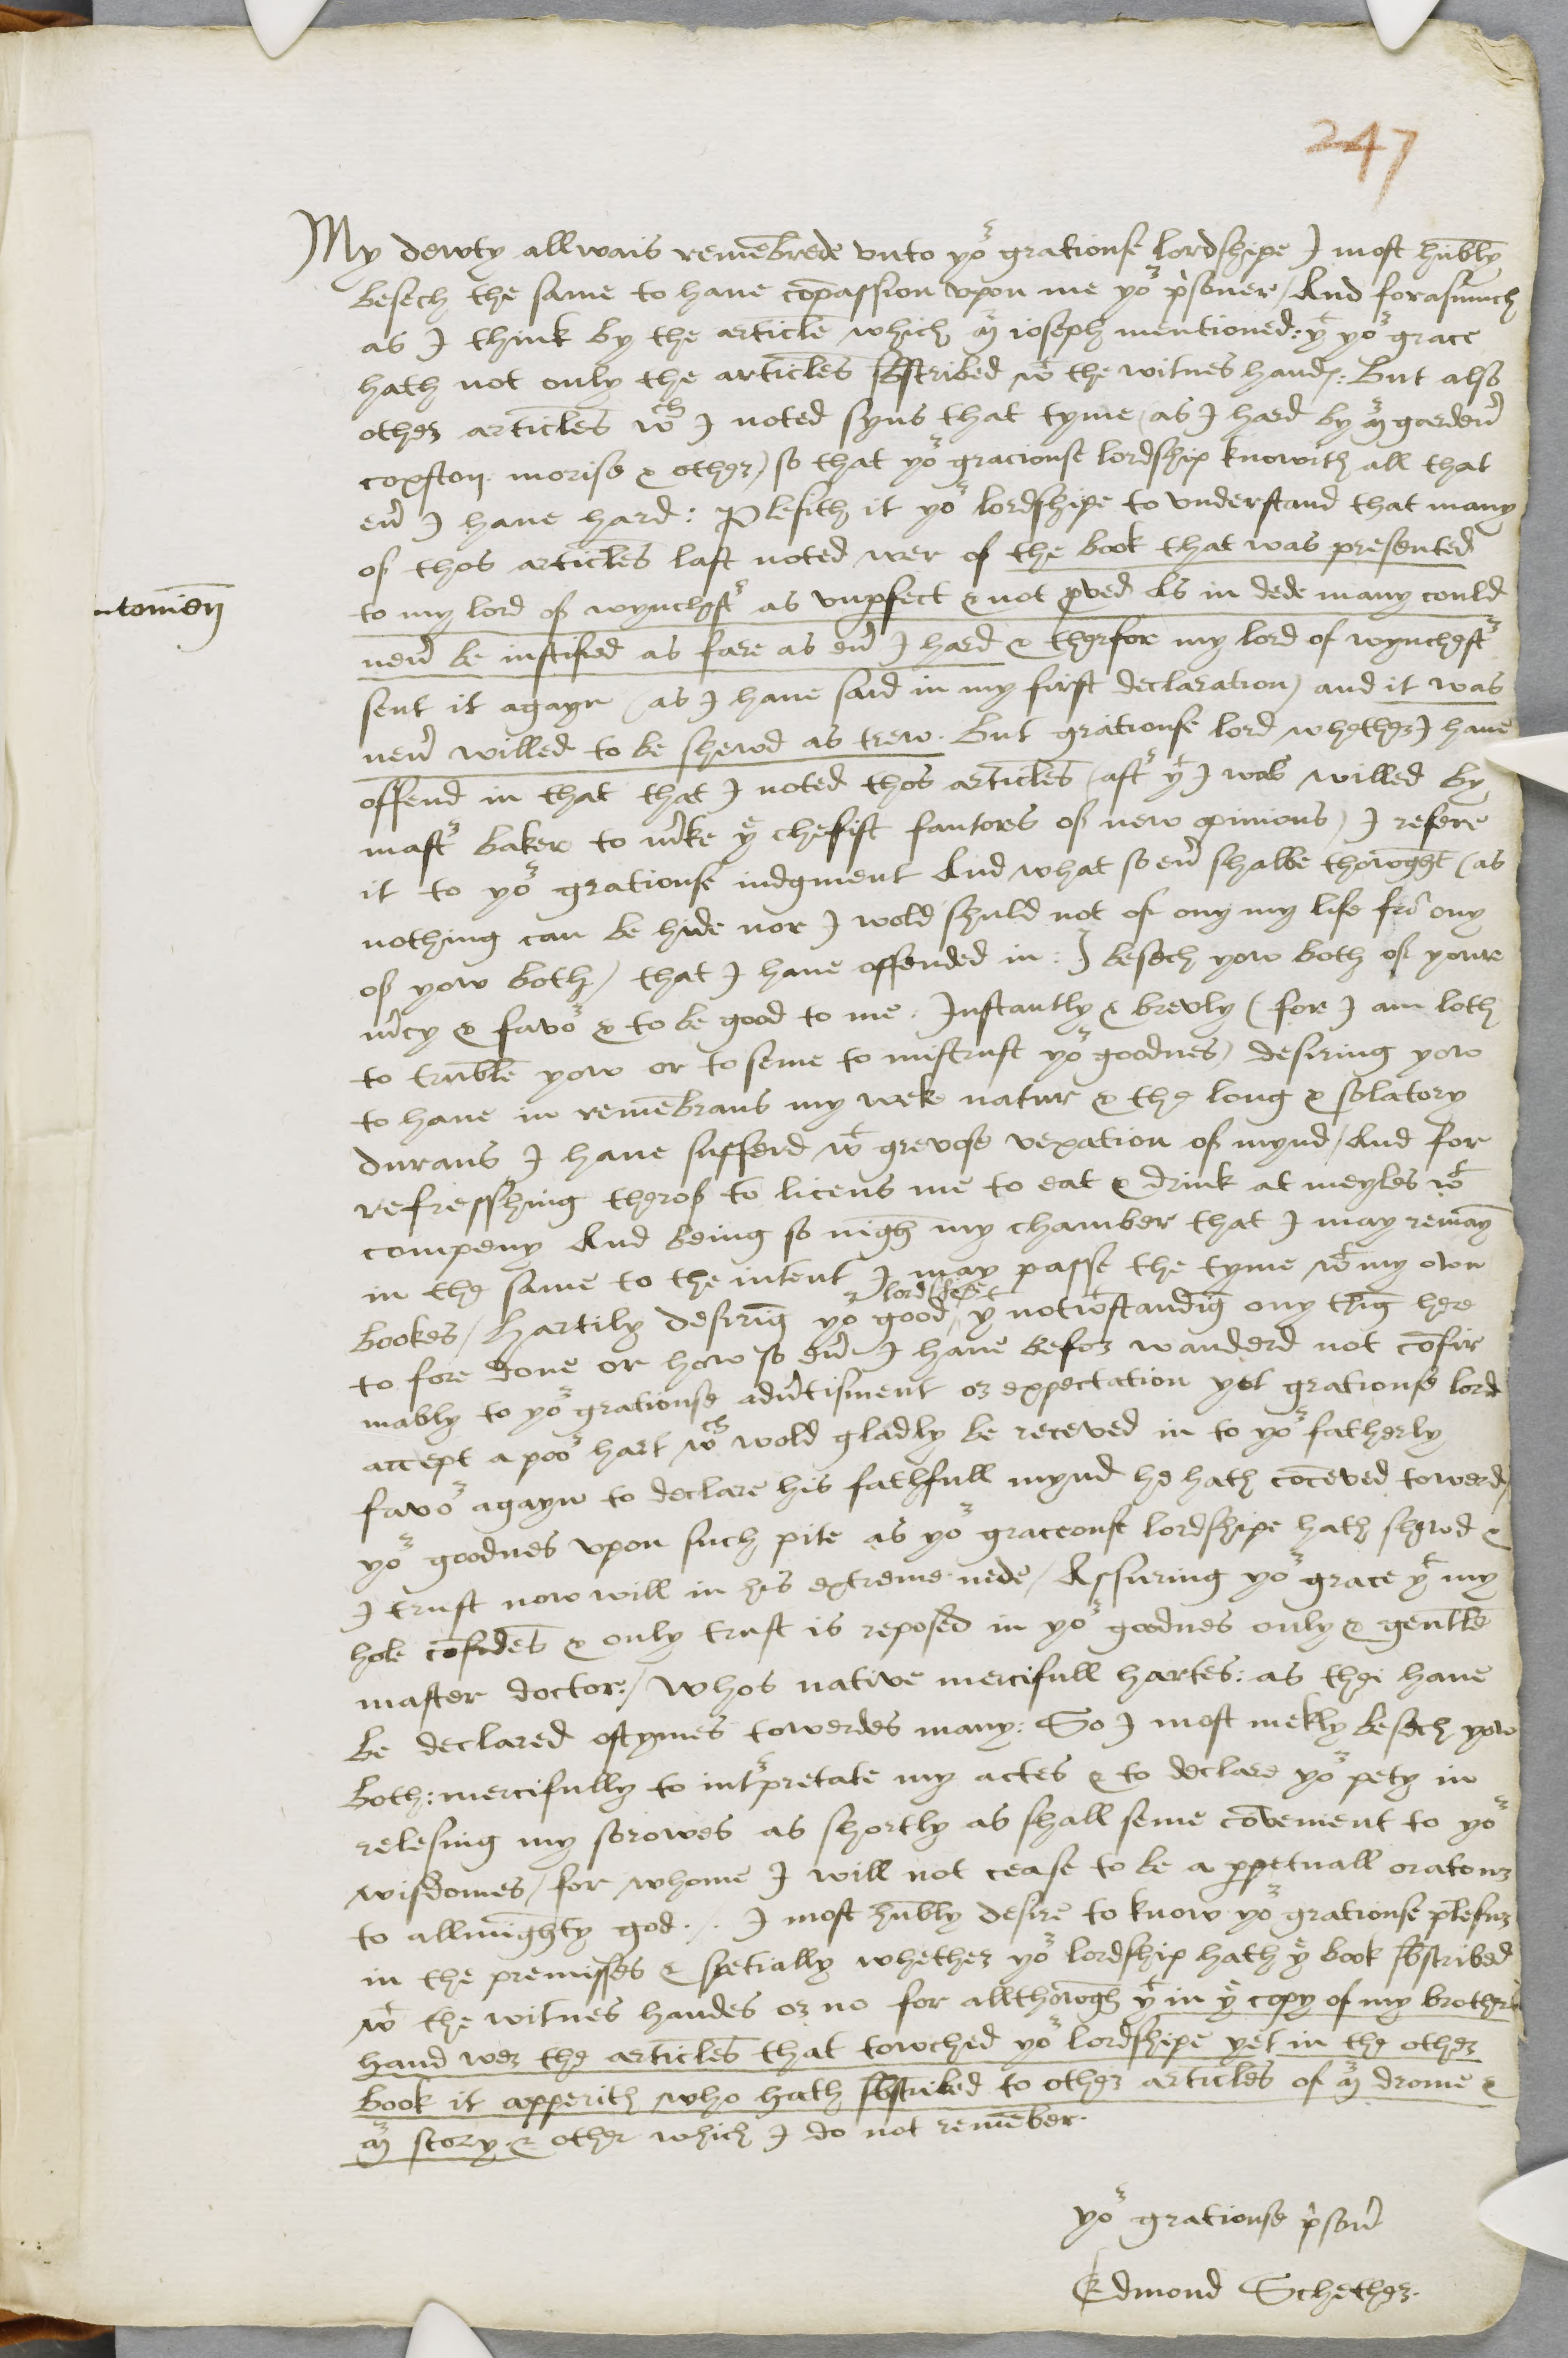 247
My dewty allwais remēbrede vnto yoʳ gratiouse lordshipe I most hūbly
besech the same to haue cōpassion vpon me yoʳ pʳsoner / And forasmuch
as I think by the article which mʳ ioseph mentioned : yᵗ yoʳ grace
hath not only the articles sbscribed wᵗ the witnes handes : But also
other articles wᶜʰ I noted syns that tyme (as I hard by mʳ gardenʳ
coxston morise & other) so that yoʳ graciouse lordship knowith all that
euʳ I haue hard : Plesith it yoʳ lordshipe to vnderstand that many
of thos articles last noted wer of the book that was presented
to my lord of wynchestʳ as vnpfect & not pved As in dede many could
neuʳ be iustified as fare as euʳ I hard & therfor my lord of wynchestʳ
sent it agayn (as I haue said in my first declaration) and it was
neuʳ willed to be shewd as trew . But gratiouse lord whether I haue
offend in that that I noted thos articles (aftʳ yᵗ I was willed by
mastʳ baker to mʳke yᵉ chefist fautors of new opinions) I refere
it to yoʳ gratiouse iudgment And what so euʳ shalbe thowght (as
nothing can be hide nor I wold shuld not of ony my life frō ony
of yow both) that I haue offended in : I besech yow both of youre
mʳcy & favoʳ & to be good to me . Instantly & brevly (for I am loth
to truble yow or to seme to mistrust yoʳ goodnes) desiring yow
to haue in remēbrans my wek natur & the long & solatory
durans I haue sufferd wᵗ grevose vexation of mynd / And for
refresshing therof to licens me to eat & drink at meyles wᵗ
compeny And being so nigh my chamber that I may remay
in the same to the intent I may passe the tyme wᵗ my own
bookes / Hartily desirīg yoʳ good lordshipe yᵗ notwᵗstandīg ony thīg here
to fore done or how so euʳ I haue befor wanderd not cōfir
mably to yoʳ gratiouse aduʳtisment or expectation yet gratiouse lord
accept a pooʳ hart wᶜʰ wold gladly be receved in to yoʳ fatherly
favoʳ agayn to declare his fathfull mynd he hath cōceved towerdes
yoʳ goodnes vpon such pite as yoʳ graceouse lordshipe hath shewd &
I trust now will in his extreme nede / Assuring yoʳ grace yᵗ my
hole cōfidēs & only trust is reposed in yoʳ goodnes only & gentle
master doctor / Whos native mercifull hartes : as thei haue
be declared oftymes towerdes many : So I most mekly besech yow
both : mercifully to intʳpretate my actes & to declare yoʳ pety in
relesing my sorowes as shortly as shall seme cōvenient to yoʳ
wisdomes / for whome I will not cease to be a ppetuall oratour
to allmighty god . / . I most hūbly desire to know yoʳ gratiouse plesur
in the premisses & spetially whether yoʳ lordship hath yᵉ book sbscribed
wᵗ the witnes handes or no for allthowgh yᵗ in yᵉ copy of my brothers
hand wer the articles that towched yoʳ lordshipe yet in the other
book it apperith who hath sbscribed to other articles of mʳ drome &
mʳ story & other which I do not remēber .
yoʳ gratiouse pʳsonʳ
Edmond Schether .